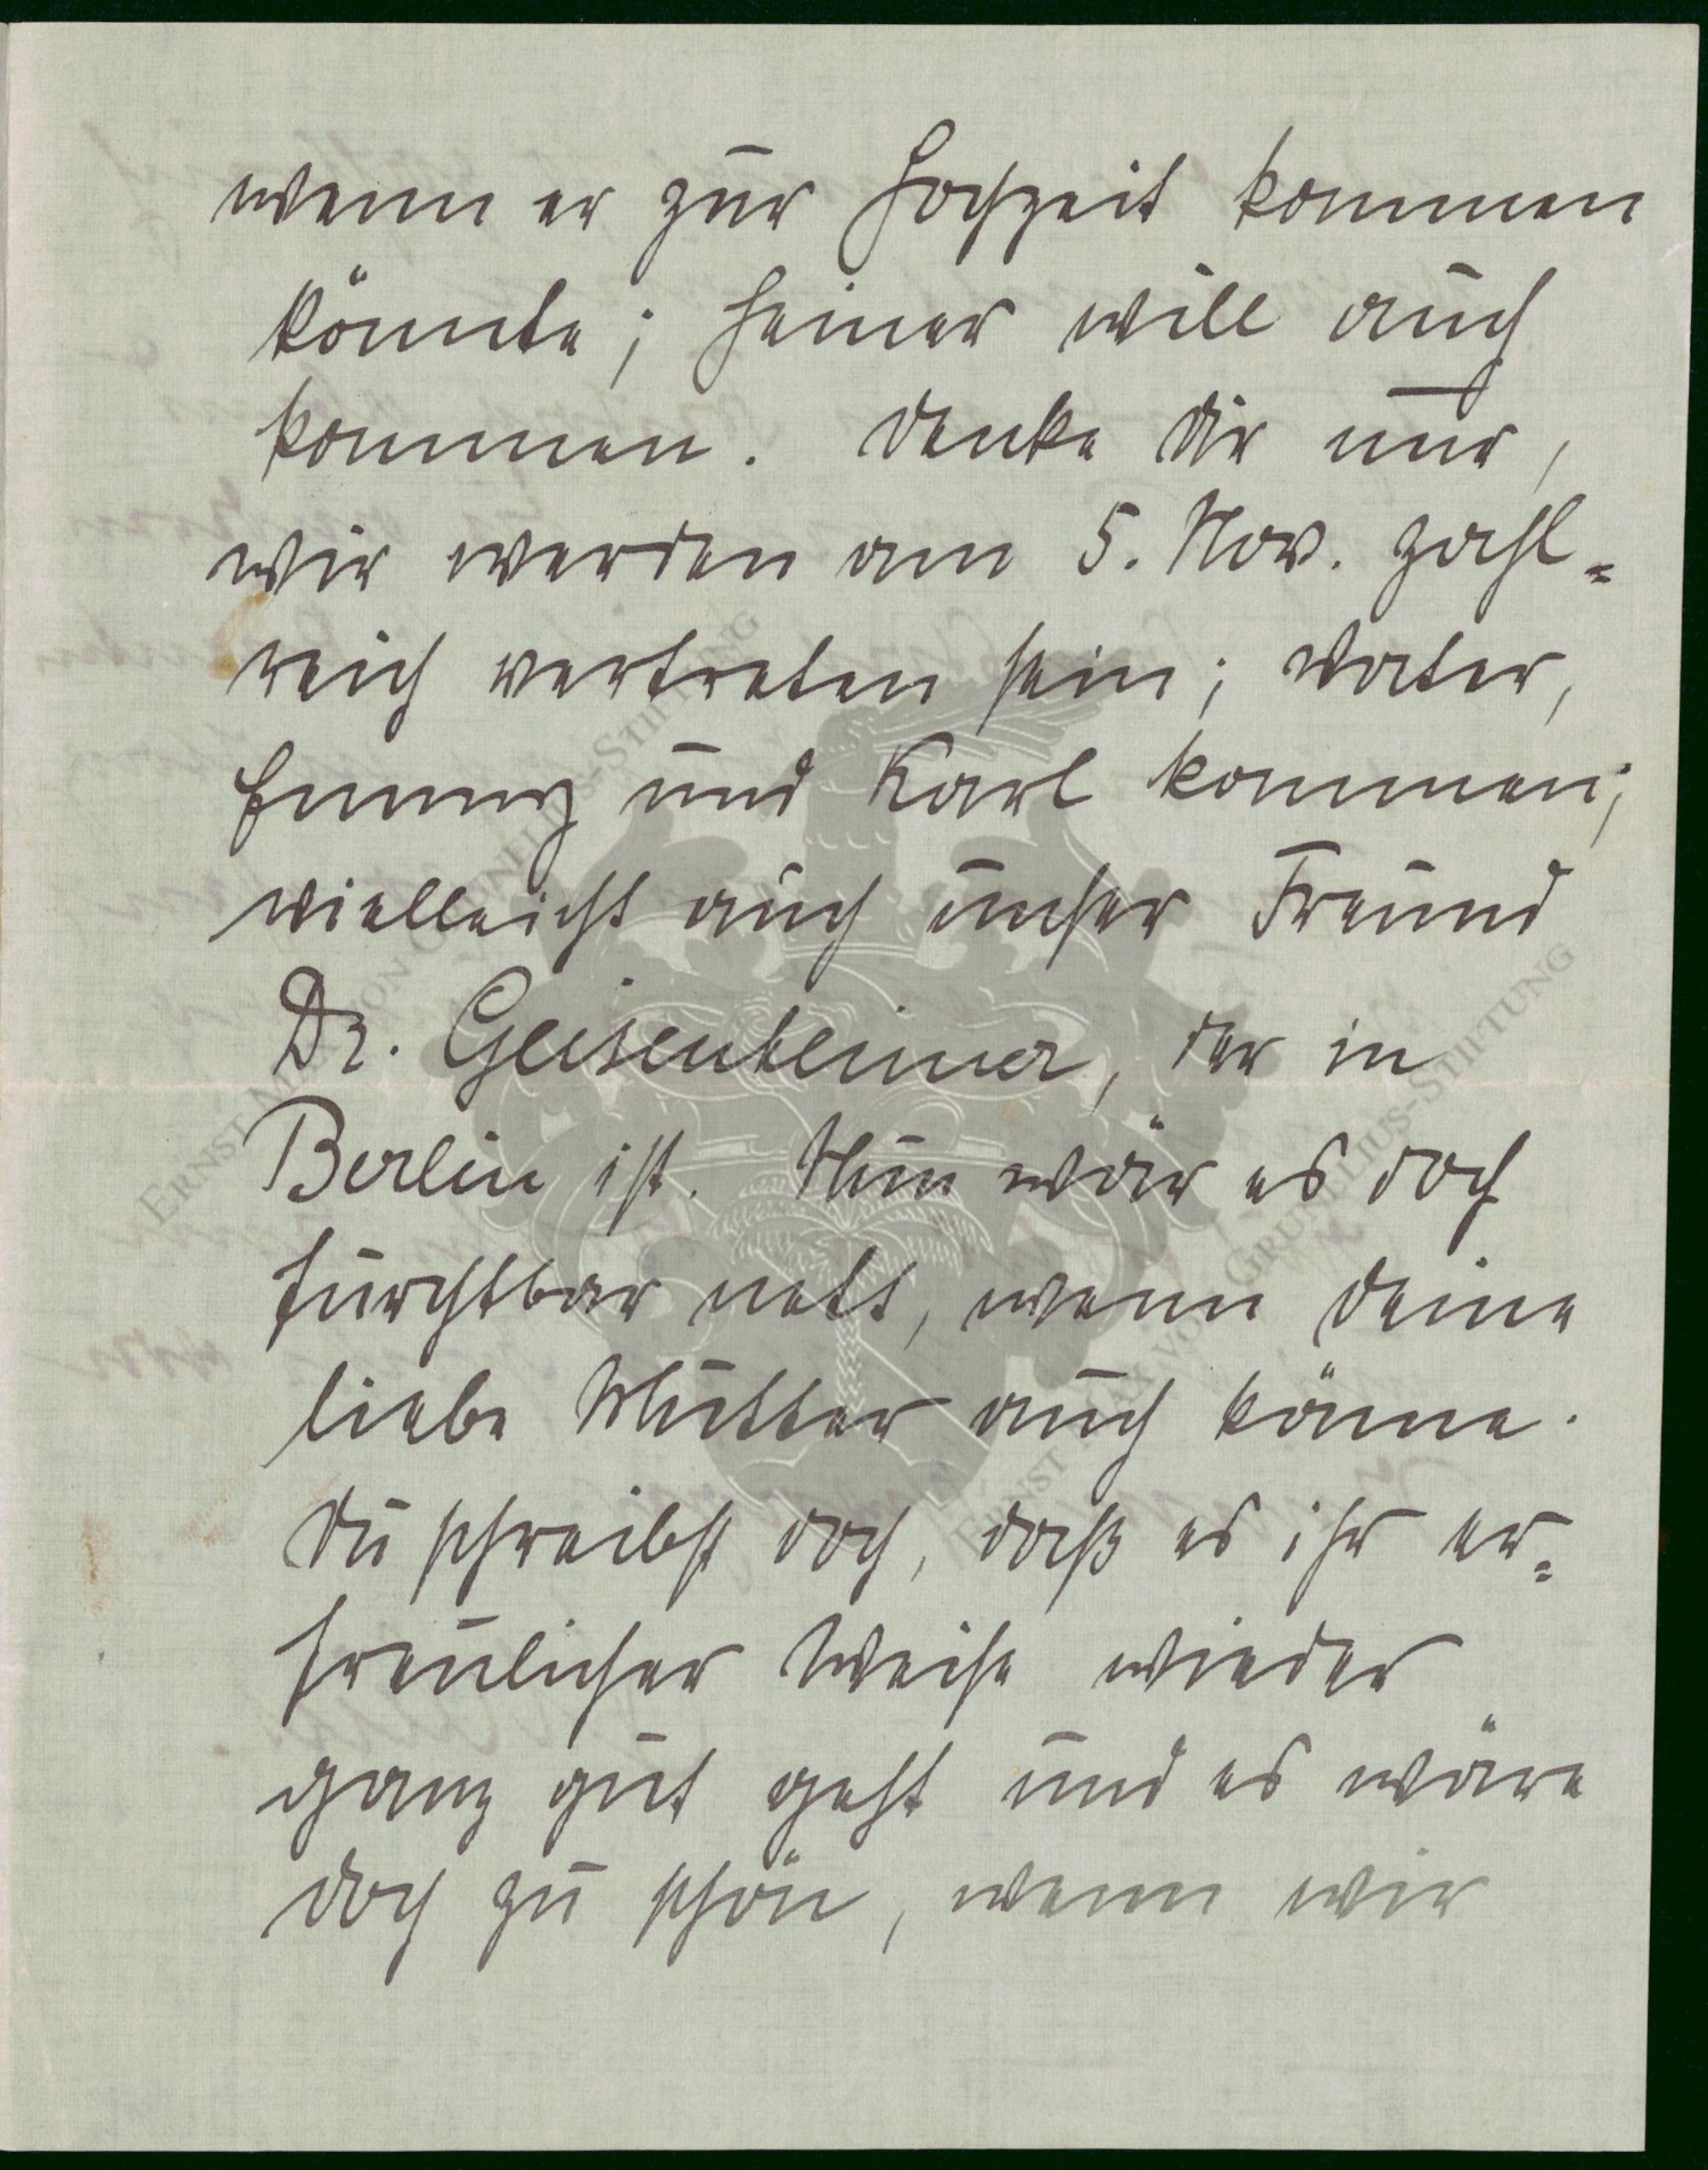 wenn er zur Hochzeit kommen
könnte; Heiner will auch
kommen. Denke Dir nur,
wir werden am 5. Nov. zahl=
reich vertreten sein; Vater,
Emmy und Karl kommen;
vielleicht auch unser Freund
Dr. Geisenheimer, der in
Berlin ist. Nun wär es doch
furchtbar nett, wenn Deine
liebe Mutter auch käme.
Du schreibst doch, daß es ihr er=
freulicher Weise wieder
ganz gut geht und es wäre
doch zu schön, wenn wir
ERNST MAX VON GRUNELIUS-STIFTUNG
ERNST MAX VON GRUNELIUS-STIFTUNG